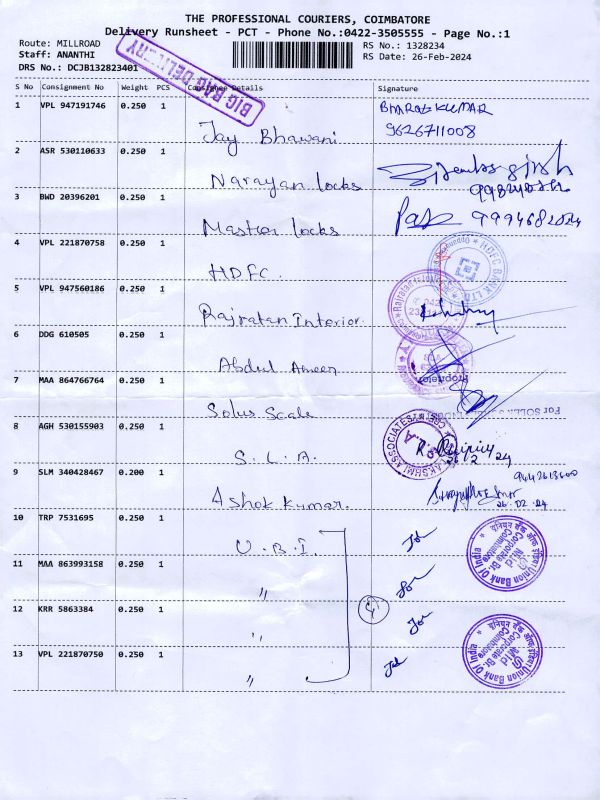 THE PROFESSIONAL COURIERS, COIMBATORE
Delivery Runsheet - PCT - Phone No.:0422-3505555 - Page No.:1
Route: MILLROAD
RS No.: 1328234
Staff: ANANTHI
RS Date: 26-Feb-2024
DRS No.: DCJB132823401
BIG BAG DELIVERY
S No Consignment No Weight PCS Consignee Details Signature
1 VPL 947191746 0.250 1 Jay Bhawani BHARAT KUMAR
9626711008
2 ASR 530110633 0.250 1 Narayan locks
3 BWD 20396201 0.250 1 Master locks
4 VPL 221870758 0.250 1 HDFC.
HDFC BANK LTD
5 VPL 947560186 0.250 1 Rajratan Interior.
6 DDG 610505 0.250 1 Abdul Ameen
Proprietor
7 MAA 864766764 0.250 1 Solus Scale
8 AGH 530155903 0.250 1 S.L.A.
LAKSHMI ASSOCIATES
9 SLM 340428467 0.200 1 Ashok kumar.
9442613600
26.02.24
10 TRP 7531695 0.250 1 U.B.I.
11 MAA 863993158 0.250 1 "
यूनियन बैंक ऑफ इंडिया Union Bank Of India
Corporate Br.
Coimbatore
12 KRR 5863384 0.250 1 "
4
13 VPL 221870750 0.250 1 "
यूनियन बैंक ऑफ इंडिया Union Bank Of India
Corporate Br.
Coimbatore